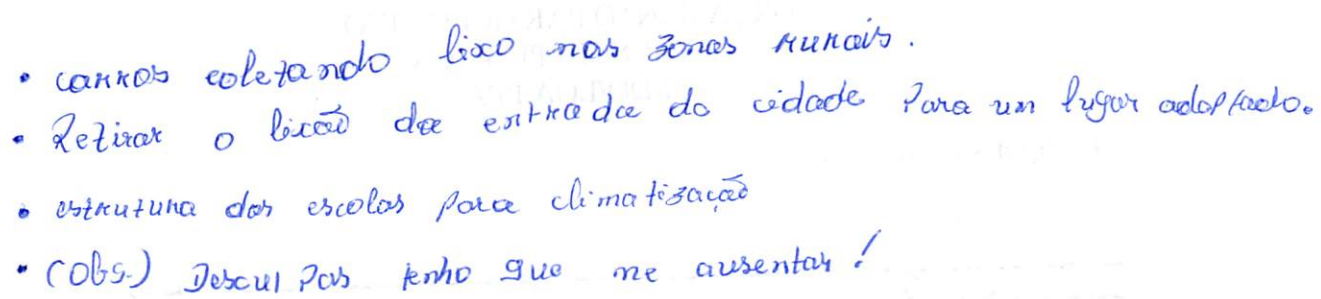 • carros coletando lixo nas zonas rurais.
• Retirar o lixão da entrada da cidade Para um lugar adaptado.
• estrutura das escolas para climatização
• (Obs.) Desculpas tenho que me ausentar!